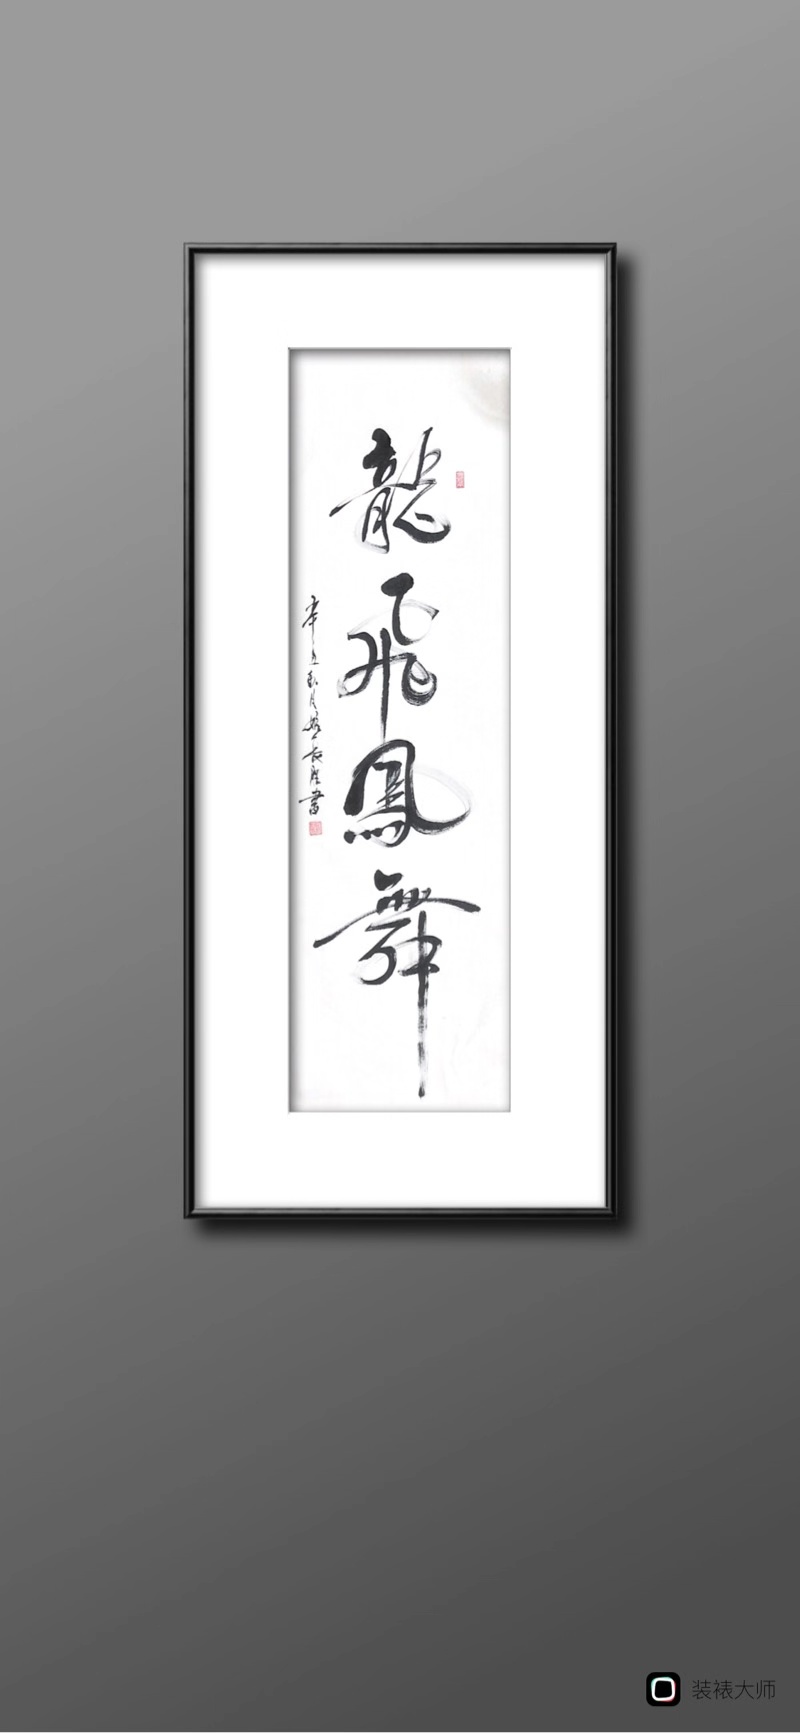 龍飛鳳舞
辛丑秋月
書
装裱大师